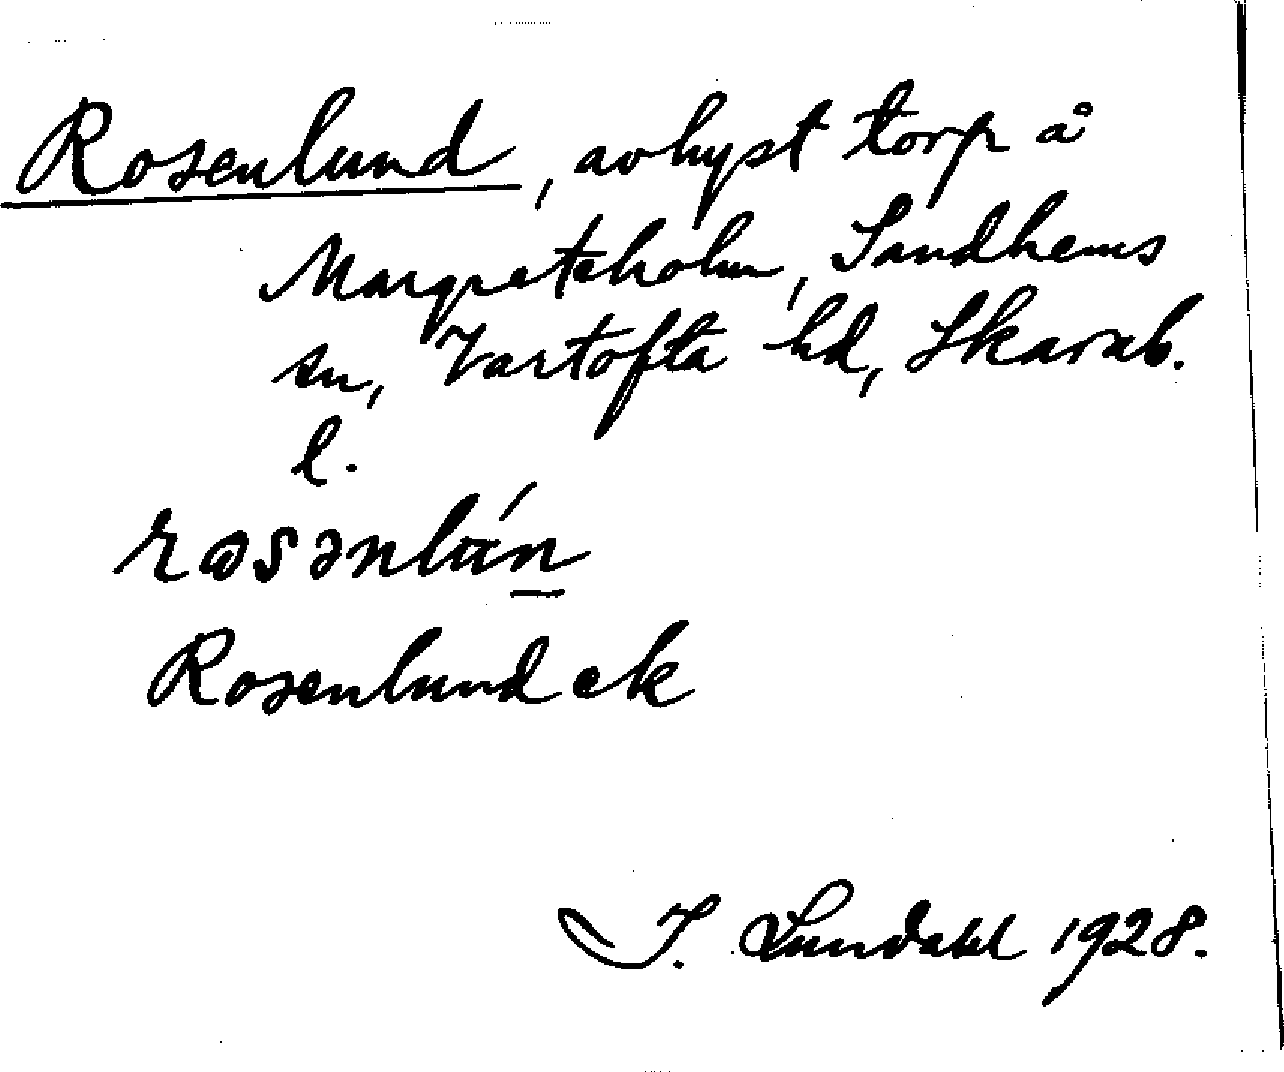 Rosenlund, avhyst torp å
Margreteholm, Sandhems
sn, Vartofta hd, Skarab.
l.
Rosenlund ek
I. Lundahl 1928.